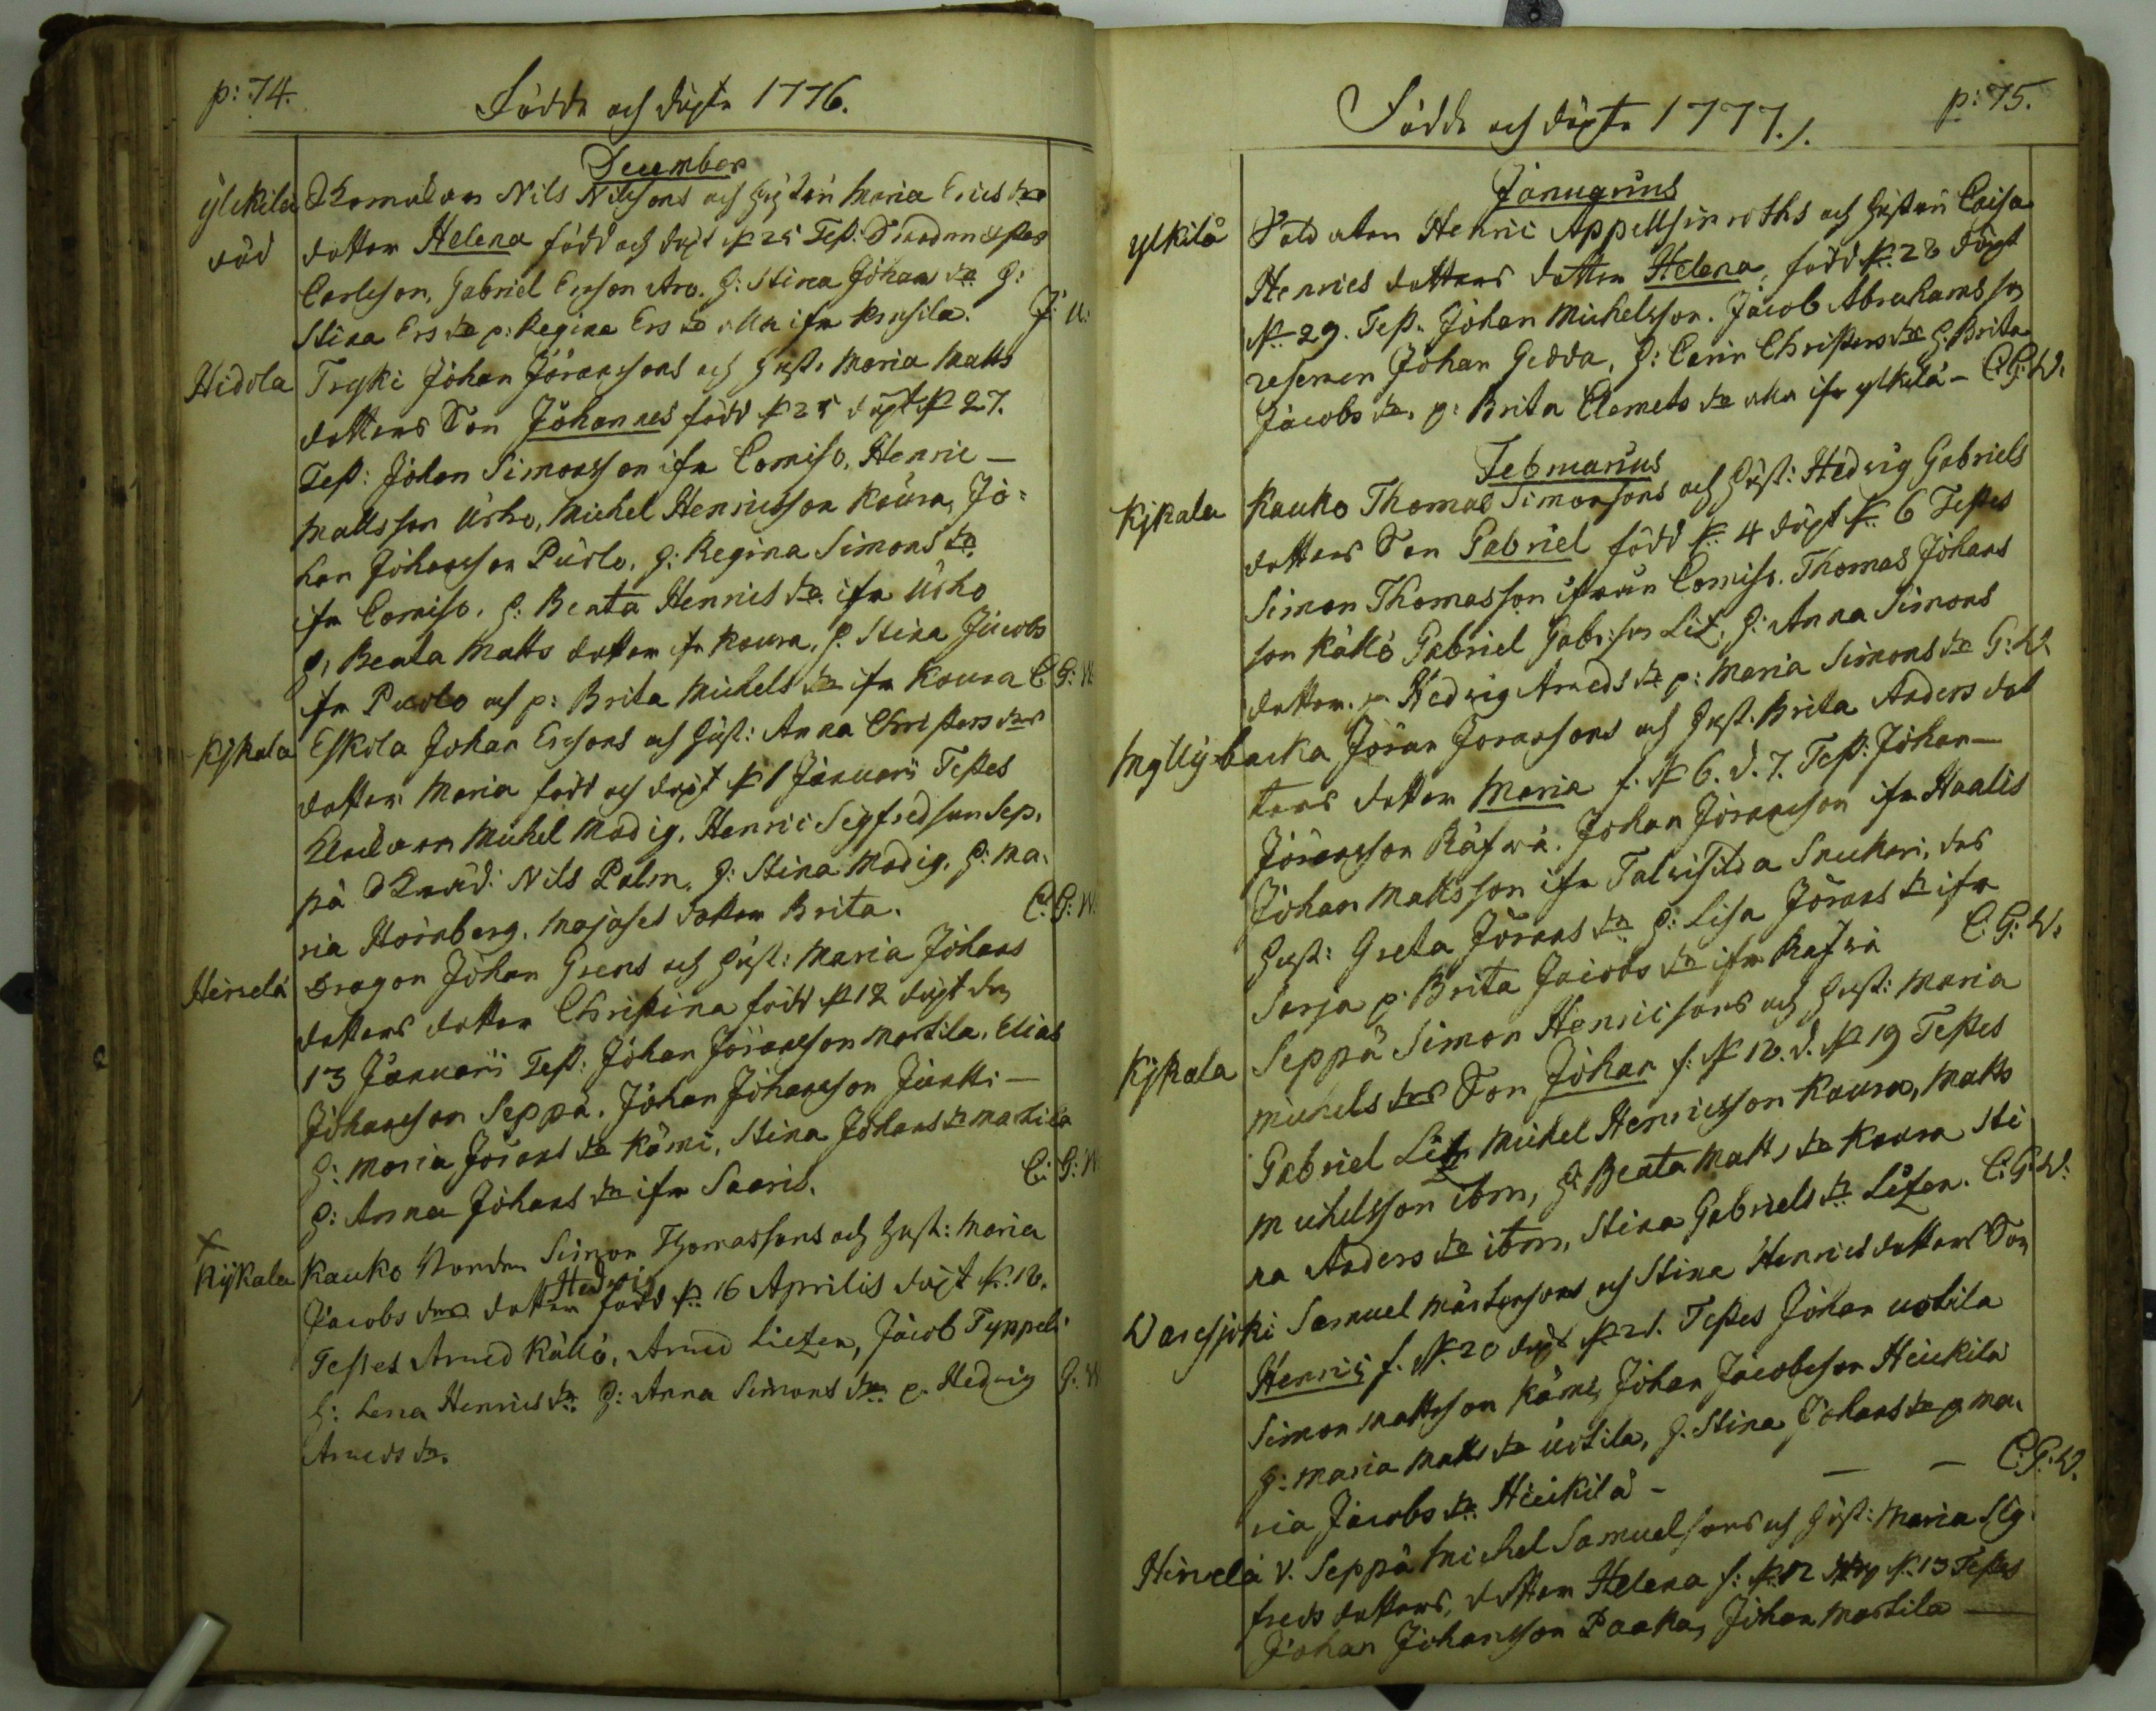 p: 74.
Födde och döpte 1776.
December
ÿlikilä Nils Nilssons och Hustrun Maria Erics dr
dotter Helena född och döpt d 25 Test:
Carlsson, Gabriel Ersson Aro. h: Stina Johans dr h:
Stina Ers dr p: Regina Ers dr alla ifr
Hidola Tryki Johan Jöranssons och Hust. Maria Matts
dotters Son Johannes född d 25 döpt d 27.
Test: Johan Simonsson ifr Comiso, Henric
Mattsson Urho, Michel Henricsson Koura, Jo-
han Johansson Purlo, h: Regina Simons dr
ifr Comiso, h: Beata Henrics dr ifr Urho
h: Beata Matts dotter ifr Koura, h. Stina Jacobs
ifr Purlo och p: Brita Michels dr ifr Koura C: G: W:
Kÿkala Eskola Johan Ersons och Hust: Anna Christers drs
dotter Maria född och döpt d 1 Januarii Testes
Michel Modig, Henric Segfredsson Sep,
pä Nils Palm, h: Stina Modig, h: Ma-
ria Hornberg, dotter Brita. C: G: W:
Hirvelä Dragon Johan Grens och Hust: Maria Johans
dotters dotter Christina född d 12 döpt den
13 Januarii Test: Johan Jöransson Martila, Elias
Johansson Seppä, Johan Johansson Juntti
h: Maria Jörans dr Kämi, Stina Johans dr Martila
h: Anna Johans dr ifr Saaris. C: G: W
Kÿkala Kauko Simon Thomassons och Hust: Maria
Jacobs drs dotter Hedvig född d 16 Aprilis döpt d. 18.
Testes Arved Källö, Arved Litzen, Jacob Typpeli
h: Lena Henrics dr. h: Anna Simons dr p. Hedvig G: W
Arveds dr.
p: 75.
Födde och döpte 1777.
Januarius
ylkilä Soldaten Henric och Hustrun Caisa
Henrics dotters dotter Helena, född d. 28 döpt
d. 29. Test. Johan Michelsson. Jacob Abrahamsson
Johan Gedda, h: Carin Christers dr h: Brita
Jacobs dr, p: Brita Clemets dr alla ifr ylkilä - C: G: W.
Februarius
Kÿkala Kauko Thomas Simonsons och Hust: Hedvig Gabriels
dotters Son Gabriel född d. 4 döpt d. 6 Testes
Simon Thomasson ifrån Comiso. Thomas Johans
son Källö Gabriel Gabr:son Lit, h: Anna Simons
dotter. p. Hedvig Arveds dr p: Maria Simons dr G: W.
Myllÿbacka Jöran Joransons och Hust. Brita Anders dot
ters dotter Maria f. d 6. d. 7. Test: Johan
Jöransson Räfwä. Johan Jöransson ifr Haalis
Johan Mattsson ifr Talvisilda Snukari, des
Hust: Greta Jörans dr h: Lisa Jörans dr ifr
Sarja p: Brita Jacobs dr ifr Rafwä C: G: W.
Kÿkala Seppä Simon Henricsons och Hust: Maria
Michels drs Son Johan f: d 18. d. d 19 Testes
Gabriel Lit Michel Henricsson Koura, Matts
Michelsson ibm, h: Beata Matts dr Koura Sti
na Anders dr ibm, Stina Gabriels dr Litzen. C: G: W:
Waresjoki Samuel Mårtensons och Stina Henrics dotters Son
Henric f. d. 20 döpt d 21. Testes Johan uotila
Simon Mattsson Kämi, Johan Jacobsson Heickilä
h: Maria Matts dr uotila, h. Stina Johans dr p Ma-
ria Jacobs dr Heickilä - C: G: W.
Hirvelä v. Seppä Michel Samuelsons och Hust: Maria Sig-
freds dotters, dotter Helena f: d. 12 d. 13 Testes
Johan Johansson Paaka, Johan Martila